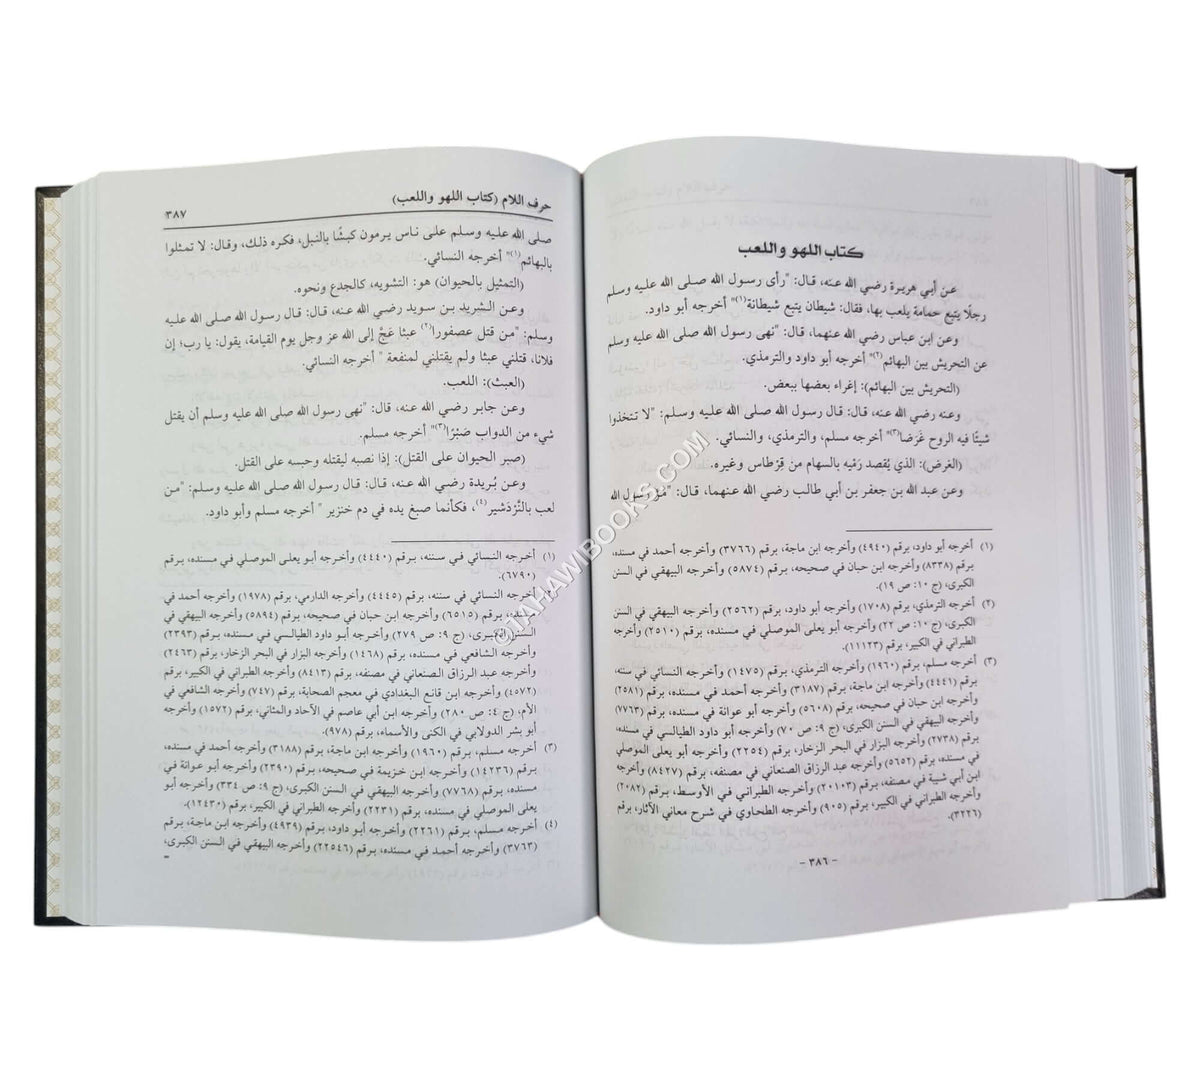 كتاب اللهو واللعب
عن أبي هريرة رضي الله عنه، قال: "رأى رسول الله صلى الله عليه وسلم
رجلًا يتبع حمامة يلعب بها، فقال: شيطان يتبع شيطانة(١)" أخرجه أبو داود.
وعن ابن عباس رضي الله عنهما، قال: "نهى رسول الله صلى الله عليه وسلم
عن التحريش بين البهائم(٢)" أخرجه أبو داود والترمذي.
(التحريش بين البهائم): إغراء بعضها ببعض.
وعنه رضي الله عنه، قال: قال رسول الله صلى الله عليه وسلم: "لا تتخذوا
شيئًا فيه الروح غَرَضا(٣)" أخرجه مسلم، والترمذي، والنسائي.
(الغرض): الذي يُقصد رَمْيه بالسهام من قِرْطاس وغيره.
وعن عبد الله بن جعفر بن أبي طالب رضي الله عنهما، قال: "مَرّ رسول الله
(١) أخرجه أبو داود، برقم (٤٩٤٠) وأخرجه ابن ماجة، برقم (٣٧٦٦) وأخرجه أحمد في مسنده،
برقم (٨٣٣٨) وأخرجه ابن حبان في صحيحه، برقم (٥٨٧٤) وأخرجه البيهقي في السنن
الكبرى، (ج ١٠: ص ١٩).
(٢) أخرجه الترمذي، برقم (١٧٠٨) وأخرجه أبو داود، برقم (٢٥٦٢) وأخرجه البيهقي في السنن
الكبرى، (ج ١٠: ص ٢٢) وأخرجه أبو يعلى الموصلي في مسنده، برقم (٢٥١٠) وأخرجه
الطبراني في الكبير، برقم (١١١٢٣).
(٣) أخرجه مسلم، برقم (١٩٦٠) وأخرجه الترمذي، برقم (١٤٧٥) وأخرجه النسائي في سننه،
برقم (٤٤٤١) وأخرجه ابن ماجة، برقم (٣١٨٧) وأخرجه أحمد في مسنده، برقم (٢٥٨١)
وأخرجه ابن حبان في صحيحه، برقم (٥٦٠٨) وأخرجه أبو عوانة في مسنده، برقم (٧٧٦٣)
وأخرجه البيهقي في السنن الكبرى، (ج ٩: ص ٧٠) وأخرجه أبو داود الطيالسي في مسنده،
برقم (٢٧٣٨) وأخرجه البزار في البحر الزخار، برقم (٢٢٥٤) وأخرجه أبو يعلى الموصلي
في مسنده، برقم (٥٦٥٢) وأخرجه عبد الرزاق الصنعاني في مصنفه، برقم (٨٤٢٧) وأخرجه
ابن أبي شيبة في مصنفه، برقم (٢٠١٠٣) وأخرجه الطبراني في الأوسط، برقم (٢٠٨٢)
وأخرجه الطبراني في الكبير، برقم (٩٠٥) وأخرجه الطحاوي في شرح معاني الآثار، برقم
(٣٢٢٦).
- ٣٨٦ -
حرف اللام (كتاب اللهو واللعب) ٣٨٧
صلى الله عليه وسلم على ناس يرمون كبشًا بالنبل، فكره ذلك، وقال: لا تمثلوا
بالبهائم(١)" أخرجه النسائي.
(التمثيل بالحيوان) هو: التشويه، كالجدع ونحوه.
وعن الشريد بن سويد رضي الله عنه، قال: قال رسول الله صلى الله عليه
وسلم: "من قتل عصفورا(٢) عبثا عَجَّ إلى الله عز وجل يوم القيامة، يقول: يا رب؛ إن
فلانا، قتلني عبثا ولم يقتلني لمنفعة " أخرجه النسائي.
(العبث): اللعب.
وعن جابر رضي الله عنه، قال: "نهى رسول الله صلى الله عليه وسلم أن يقتل
شيء من الدواب صَبْرًا(٣)" أخرجه مسلم.
(صبر الحيوان على القتل): إذا نصبه ليقتله وحبسه على القتل.
وعن بُريدة رضي الله عنه، قال: قال رسول الله صلى الله عليه وسلم: "من
لعب بالنَّرْدَشير(٤)، فكأنما صبغ يده في دم خنزير " أخرجه مسلم وأبو داود.
(١) أخرجه النسائي في سننه، برقم (٤٤٤٠) وأخرجه أبو يعلى الموصلي في مسنده، برقم
(٦٧٩٠).
أخرجه النسائي في سننه، برقم (٤٤٤٥) وأخرجه الدارمي، برقم (١٩٧٨) وأخرجه أحمد في
برقم (٦٥١٥) وأخرجه ابن حبان في صحيحه، برقم (٥٨٩٤) وأخرجه البيهقي في
السنن الكبرى، (ج ٩: ص ٢٧٩) وأخرجه أبو داود الطيالسي في مسنده، برقم (٢٣٩٣)
وأخرجه الشافعي في مسنده، برقم (١٤٦٨) وأخرجه البزار في البحر الزخار، برقم (٢٤٦٣)
وأخرجه عبد الرزاق الصنعاني في مصنفه، برقم (٨٤١٣) وأخرجه الطبراني في الكبير، برقم
(٤٥٧٢) وأخرجه ابن قانع البغدادي في معجم الصحابة، برقم (٧٤٧) وأخرجه الشافعي في
الأم، (ج ٤: ص ٢٨٠) وأخرجه ابن أبي عاصم في الآحاد والمثاني، برقم (١٥٧٢) وأخرجه
أبو بشر الدولابي في الكنى والأسماء، برقم (٩٧٨).
(٣) أخرجه مسلم، برقم (١٩٦٠) وأخرجه ابن ماجة، برقم (٣١٨٨) وأخرجه أحمد في مسنده،
برقم (١٤٢٣٦) وأخرجه ابن خزيمة في صحيحه، برقم (٢٣٩٠) وأخرجه أبو عوانة في
مسنده، برقم (٧٧٦٨) وأخرجه البيهقي في السنن الكبرى، (ج ٩: ص ٣٣٤) وأخرجه أبو
يعلى الموصلي في مسنده، برقم (٢٢٣١) وأخرجه الطبراني في الكبير، برقم (١٢٤٣٠).
(٤) أخرجه مسلم، برقم (٢٢٦١) وأخرجه أبو داود، برقم (٤٩٣٩) وأخرجه ابن ماجة، برقم
(٣٧٦٣) وأخرجه أحمد في مسنده، برقم (٢٢٥٤٦) وأخرجه البيهقي في السنن الكبرى،
©TAHAWIBOOKS.COM